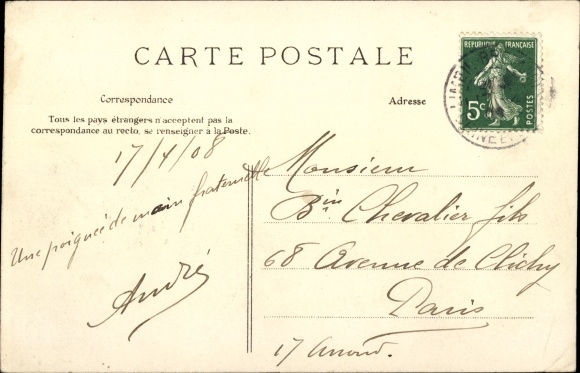 CARTE POSTALE
Correspondance
Adresse
Tous les pays étrangers n'acceptent pas la
correspondance au recto, se renseigner à la Poste.
REPUBLIQUE FRANÇAISE
5c
POSTES
17/4/08
Une poignée de main fraternelle
André
Monsieur
Bin Chevalier fils
68 Avenue de Clichy
Paris
17 Arrond.